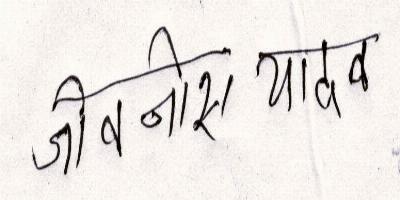 जीवनीश यादव